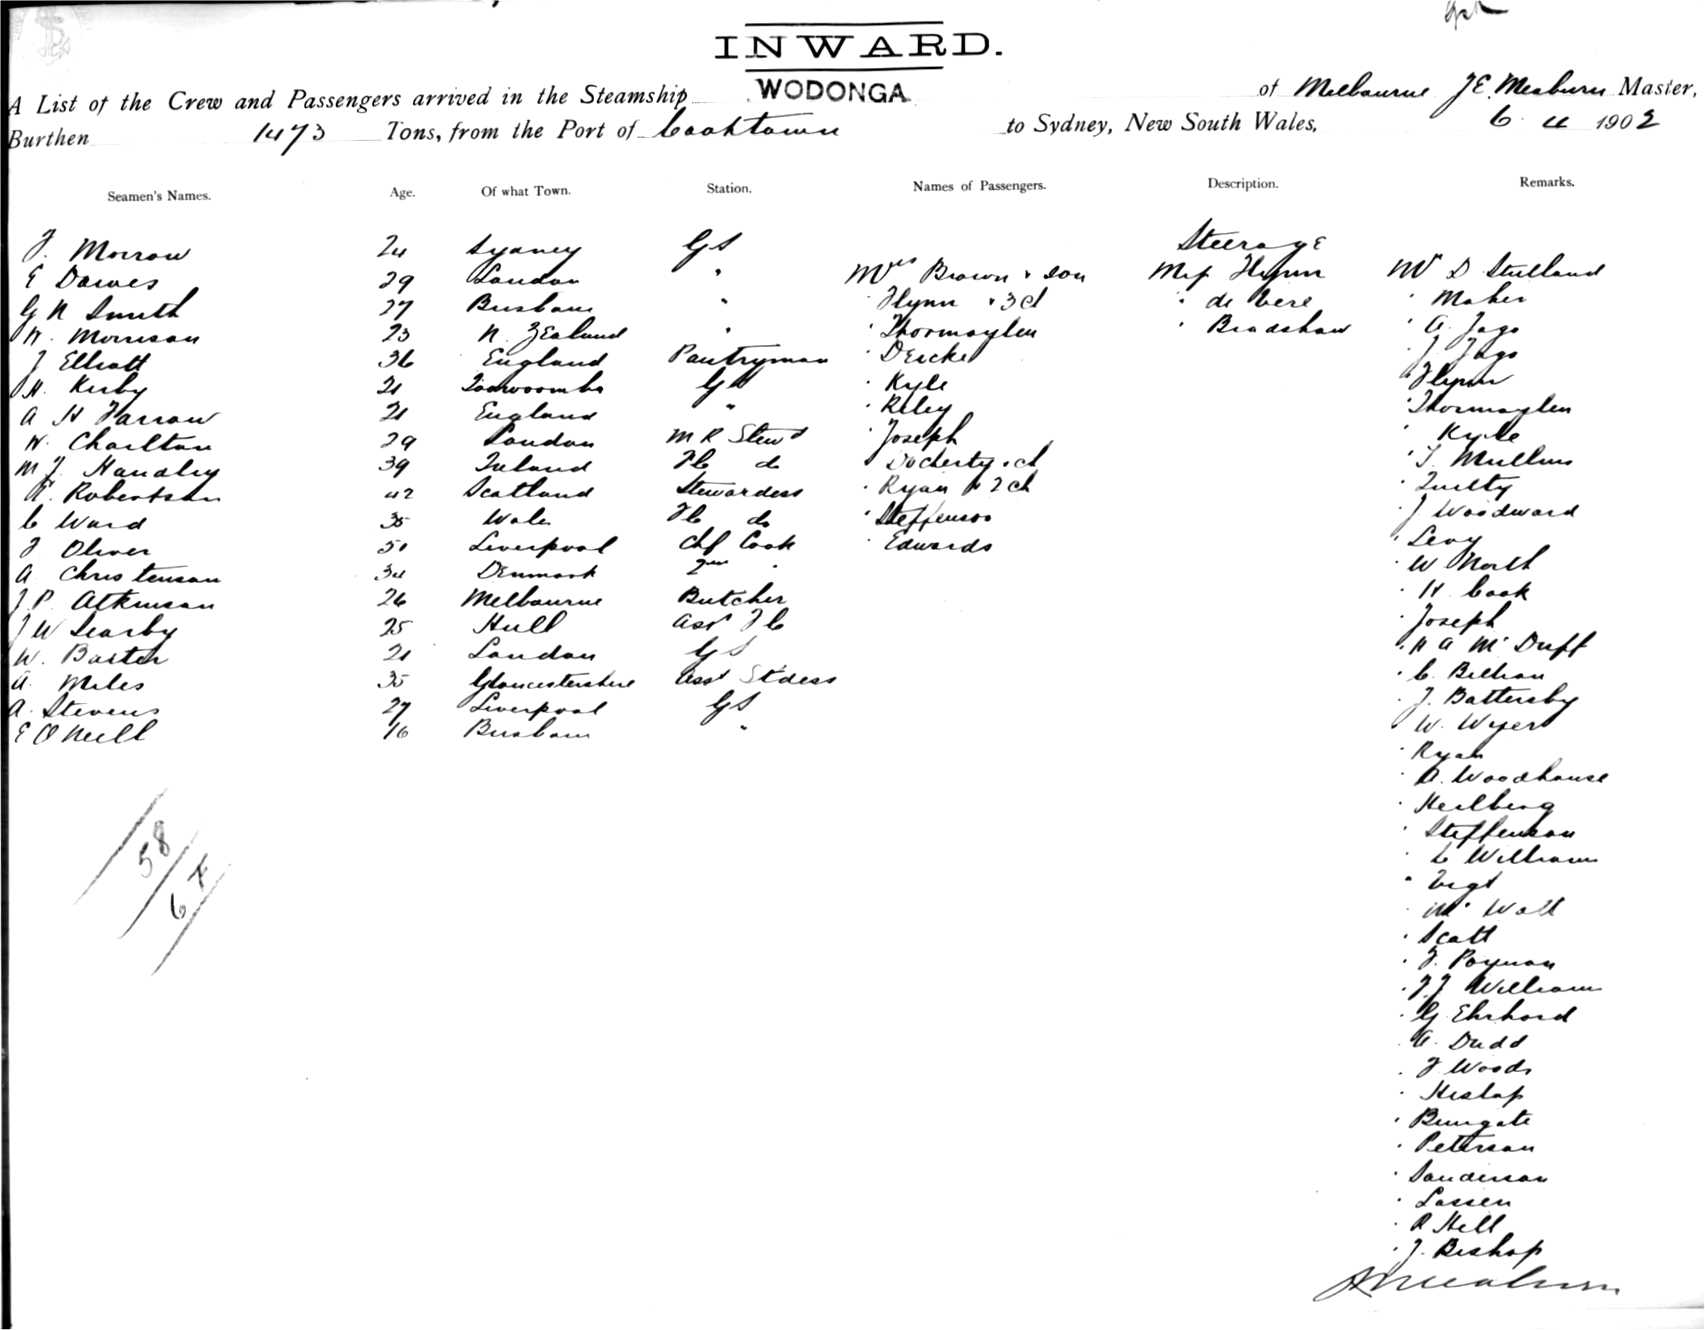 INWARD.
A List of the Crew and Passengers arrived in the Steamship WODONGA of Melbourne J E. Meaburn Master,
Burthen 1473 Tons, from the Port of Cooktown to Sydney, New South Wales, 6 4 1902
Seamen's Names. Age. Of what Town. Station. Names of Passengers. Description. Remarks.
Steerage
F. Morrow 24 Sydney GS
E Dawes 29 London " Mrs Brown & son Miss Flynn Mr D Stutland
G N Smith 27 Brisbane " " Flynn & 3 ch " de Vere " Maher
W. Morrison 23 N. Zealand " " Thormaylen " Bradshaw " A. Jago
J Elliott 36 England Pantryman " Deicke " J Jago
H. Kirby 21 Toowoomba GS " Kyle " Flynn
A H Farrow 21 England " " Riley " Thormaylen
W. Charlton 29 London M R Stewd " Joseph " Kyle
M J. Handley 39 Ireland F C do " Docherty & ch " T. Mullins
A. Robertson 42 Scotland Stewardess " Ryan & 2 ch " Quilty
C Ward 35 Wales F C do " Steffenson " J Woodward
J Oliver 50 Liverpool Chf Cook " Edwards " Levy
A Christenson 34 Denmark 2nd " " W North
J. P. Atkinson 26 Melbourne Butcher " H. Cook
J W Searby 25 Hull Asst F C " Joseph
W. Baxter 21 London GS " A Mc Duff
A. Miles 35 Gloucestershire Asst Stdess " C.
A. Stevens 27 Liverpool GS " J. Battersby
E O Neill 16 Brisbane " " W. Wyer
" Ryan
" A. Woodhouse
" Heilberg
" Steffenson
" C Williams
" Vogt
" Mc Watt
" Scott
" J. Poynon
" J J Williams
" G. Ehrhard
" A. Dudd
" J Woods
" Hislop
" Bungate
" Peterson
" Sanderson
" Lassen
" R Hill
" J. Bishop
58
64
J E Meaburn